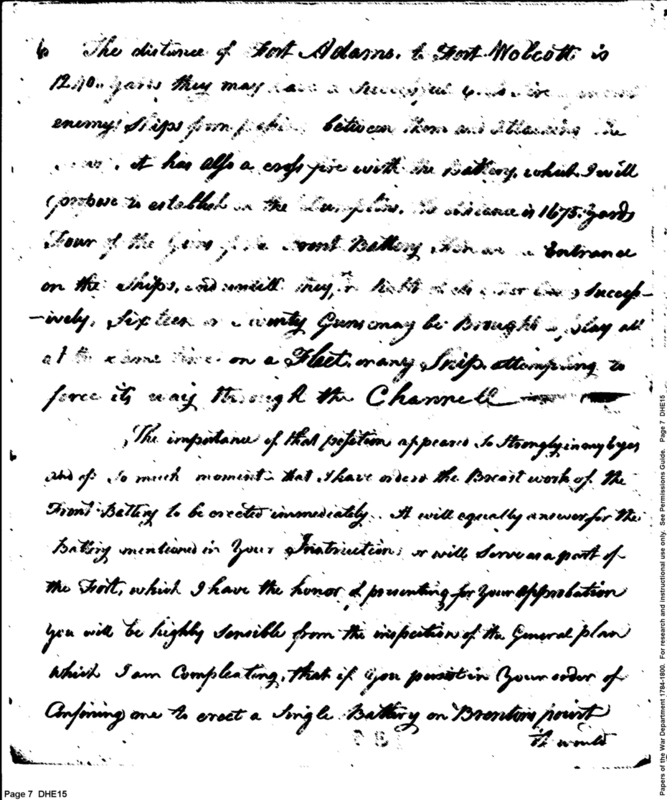 6 The distance of Fort Adams, to Fort Wolcott is
1240 yards they may have a Successful Cross fire
enemy Ships from between them and Attacking the
it has allso a cross fire with the Battery, which I will
propose to establish on the Dumplins, the distance is 1675. yards
Four of the Guns of the Front Battery Entrance
on the Ships, and untill they, in Success-
-ively, Sixteen or Twenty Guns may be Brought play all
at the same time on a Fleet, or any Ship, attempting to
force its way through the Channell
The importance of that position appeared So Strongly in my Eyes
and of So much moment that I have orderd the Breast work of the
Front Battery to be erected immediately. It will equally answer for the
Battery mentioned in Your Instruction; or will Serve as a part of
the Fort, which I have the honor of presenting for Your Approbation
You will be highly Sensible from the inspection of the General plan
which I am Compleating, that if you persist in Your order of
Confining me to erect a Single Battery on Brentons point
It would
Page 7 DHE15
Papers of the War Department 1784-1800. For research and instructional use only. See Permissions Guide. Page 7 DHE15